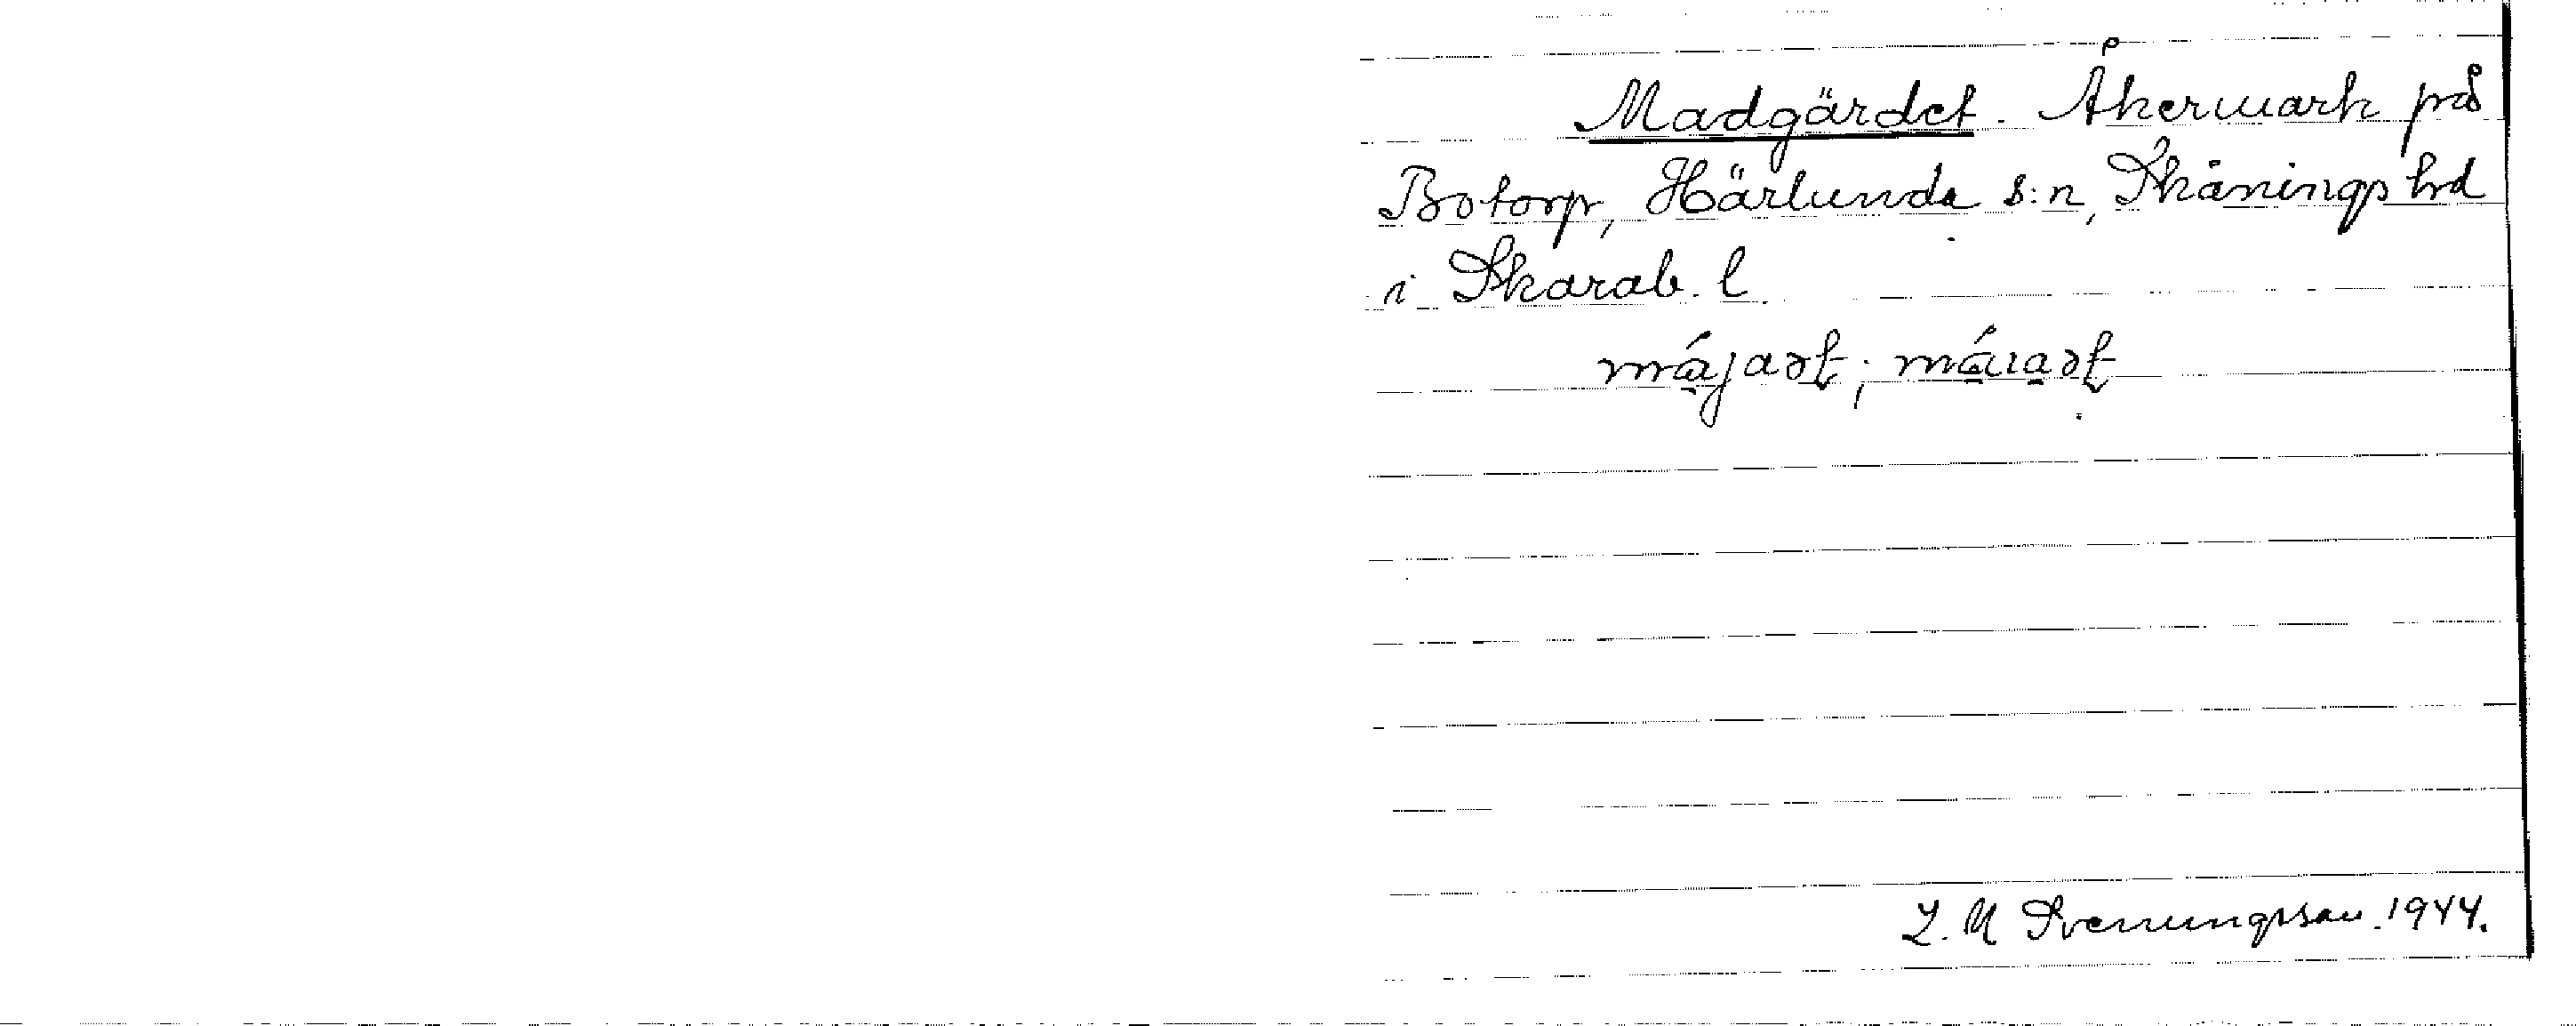 Madgärdet. Åkermark på
Botorp, Härlunda s:n, Skånings hd
i Skarab. l.
májaət; máıaət
L. M Svenungsson. 1944.